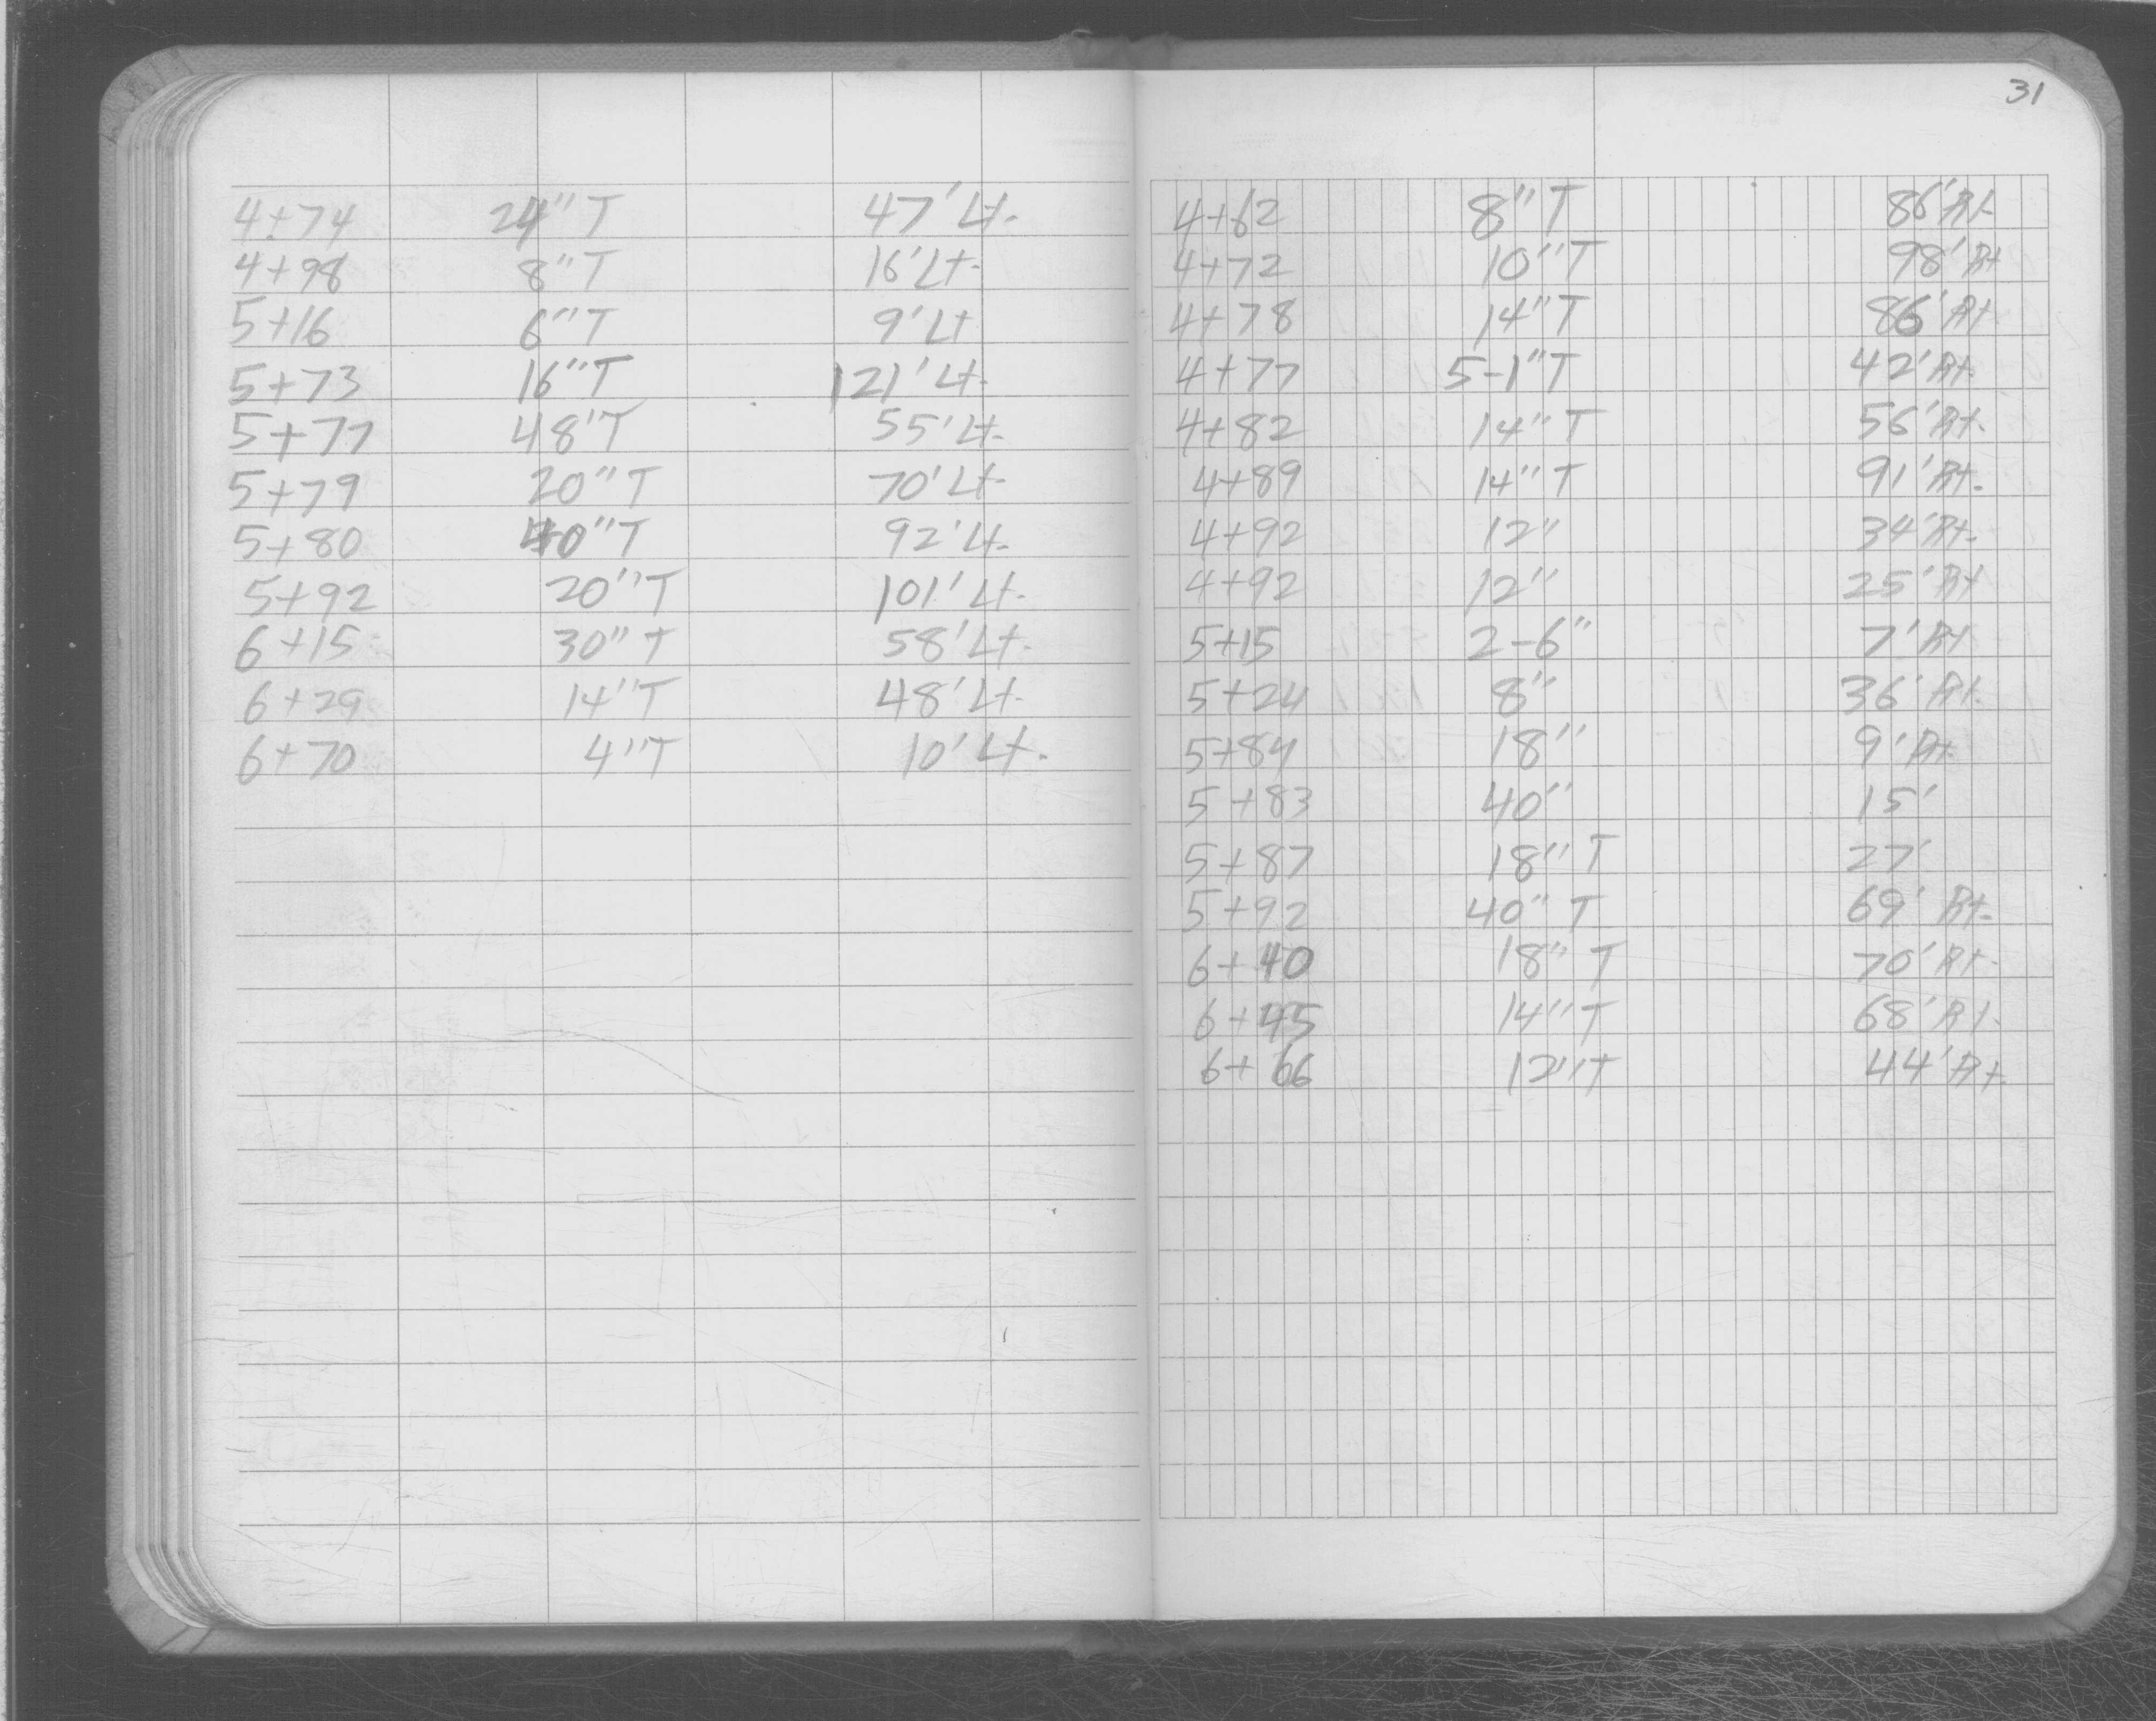 4+74 24" T 47' Lt.
4+98 8" T 16' Lt.
5+16 6" T 9' Lt
5+73 16" T 121' Lt.
5+77 48' T 55' Lt.
5+79 20" T 70' Lt.
5+80 40" T 92' Lt.
5+92 20" T 101' Lt.
6+15 30" T 58' Lt.
6+29 14" T 48' Lt.
6+70 4" T 10' Lt.
31
4+62 8" T 86' Rt.
4+72 10" T 98' Rt
4+78 14" T 86' Rt
4+77 5-1" T 42' Rt.
4+82 14" T 56' Rt.
4+89 14" T 91' Rt.
4+92 12" 34' Rt.
4+92 12" 25' Rt
5+15 2-6" 7' Rt
5+24 8" 36' Rt.
5+84 18" 9' Rt.
5+83 40" 15'
5+87 18" T 27'
5+92 40" T 69' Rt.
6+40 18" T 70' Rt.
6+45 14" T 68' Rt.
6+66 12" T 44' Rt.